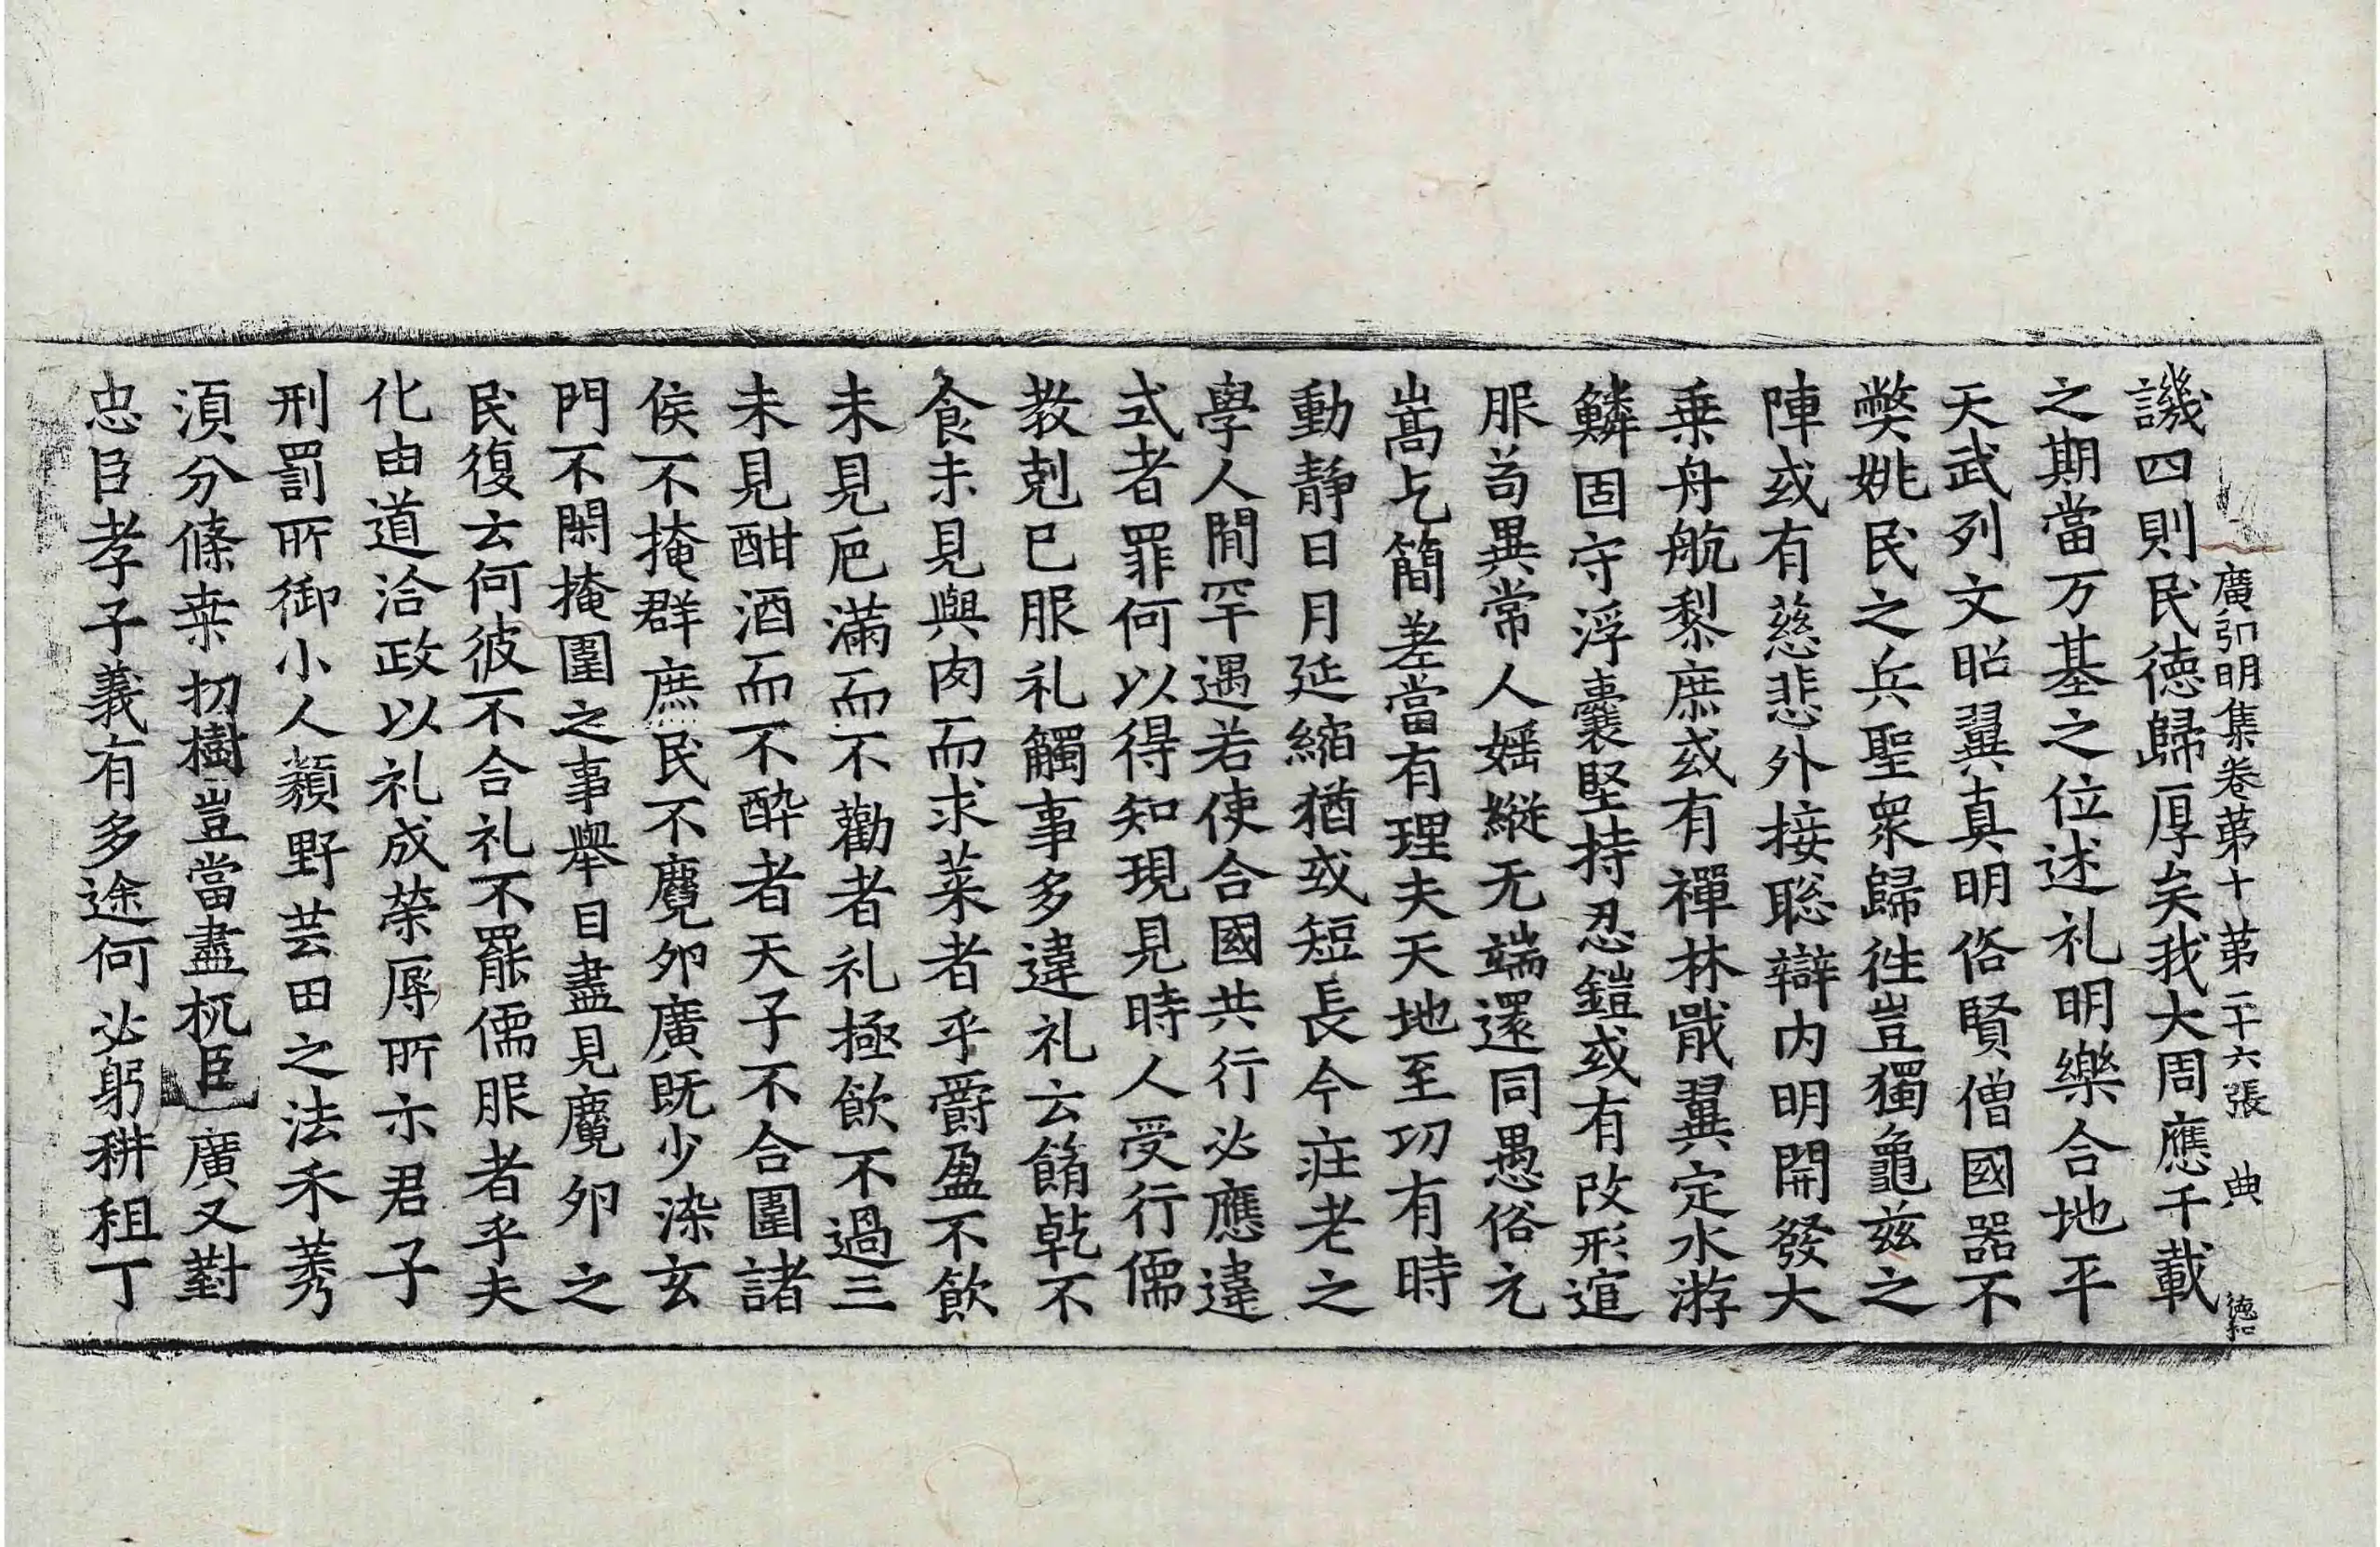 廣弘明集卷第十第二十六張 典 德和
譏四則民德歸厚矣我大周應千載
之期當万基之位述礼明樂合地平
天武列文昭翼真明俗賢僧國器不
獘姚民之兵聖衆歸往豈獨龜兹之
陣或有慈悲外接聡辯内明開發大
乗舟航黎庶或有禪林戢翼定水游
鱗固守浮囊堅持忍鎧或有改形逭
服苟異常人婬縱无端還同愚俗元
嵩乞簡差當有理夫天地至功有時
動静日月延縮猶或短長今庄老之
學人間罕遇若使合國共行必應違
式者罪何以得知現見時人受行儒
教剋已服礼觸事多違礼云餚乾不
食未見與肉而求菜者乎爵盈不飲
未見巵滿而不勸者礼極飲不過三
未見酣酒而不醉者天子不合圍諸
侯不掩群庶民不麛卵廣既少染玄
門不閑掩圍之事舉目盡見麛卵之
民復云何彼不合礼不罷儒服者乎夫
化由道洽政以礼成榮辱所示君子
刑罰所御小人類野芸田之法禾莠
湏分條桒初樹豈當盡杌臣廣又對
忠臣孝子義有多途何必躬耕租丁